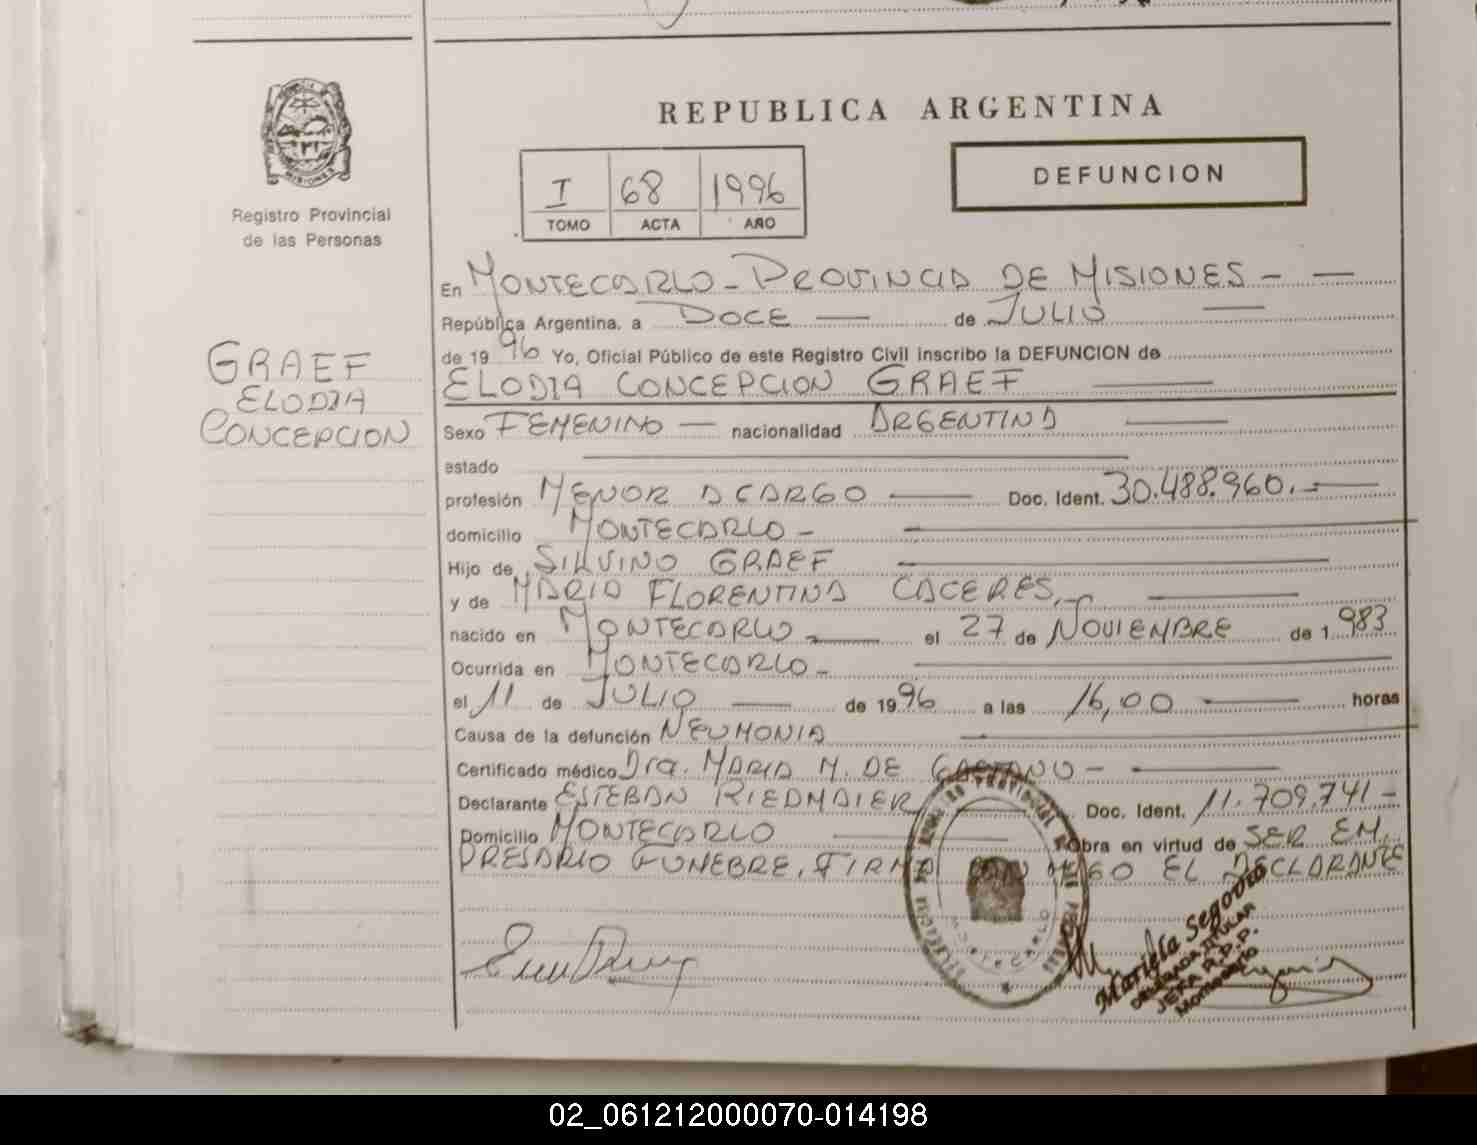 REPUBLICA ARGENTINA
I 68 1996
TOMO ACTA AÑO
DEFUNCION
Registro Provincial
de las Personas
GRAEF
ELODIA
CONCEPCION
En MONTECARLO - PROVINCIA DE MISIONES - —
República Argentina, a DOCE — de JULIO —
de 1996 Yo, Oficial Público de este Registro Civil inscribo la DEFUNCION de
ELODIA CONCEPCION GRAEF —
Sexo FEMENINO — nacionalidad ARGENTINA —
estado —
profesión MENOR A CARGO — Doc. Ident. 30.488.960.-—
domicilio MONTECARLO - —
Hijo de SILVINO GRAEF —
y de MARIA FLORENTINA CACERES.- —
nacido en MONTECARLO — el 27 de NOVIEMBRE de 1983
Ocurrida en MONTECARLO - —
el 11 de JULIO — de 1996 a las 16,00 — horas
Causa de la defunción NEUMONIA —
Certificado médico Dra. MARIA M. DE - —
Declarante ESTEBAN RIEDMAIER — Doc. Ident. 11.709.741 -
Domicilio MONTECARLO — Obra en virtud de SER EM.
PRESARIO FUNEBRE, FIRMA CONMIGO EL DECLARANTE
MONTECARLO
Mariela Segovia
DELEGADA TITULAR
JEFA R.P.P.
Montecarlo
02_061212000070-014198